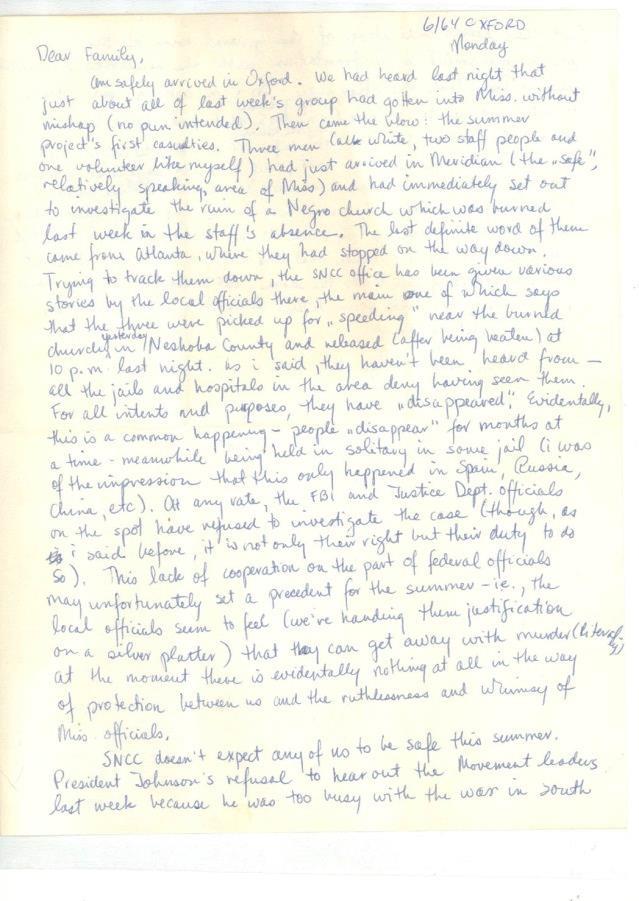 6/64 OXFORD
Monday
Dear Family,
Am safely arrived in Oxford. We had heard last night that
just about all of last week's group had gotten into Miss. without
mishap (no pun intended). Then came the blow: the summer
project's first casualties. Three men (all white, two staff people and
one volunteer like myself) had just arrived in Meridian (the "safe",
relatively speaking, area of Miss) and had immediately set out
to investigate the ruin of a Negro church which was burned
last week in the staff's absence. The last definite word of them
came from Atlanta, where they had stopped on the way down.
Trying to track them down, the SNCC office has been given various
stories by the local officials there, the main one of which says
that the three were picked up for "speeding" near the burned
church yesterday in Neshoba County and released (after being beaten) at
10 p.m. last night. As i said, they haven't been heard from —
all the jails and hospitals in the area deny having seen them.
For all intents and purposes, they have "disappeared". Evidentally,
this is a common happening – people "disappear" for months at
a time – meanwhile being held in solitary in some jail (i was
of the impression that this only happened in Spain, Russia,
China, etc). At any rate, the FBI and Justice Dept. officials
on the spot have refused to investigate the case (though, as
i said before, it is not only their right but their duty to do
so). This lack of cooperation on the part of federal officials
may unfortunately set a precedent for the summer – ie., the
local officials seem to feel (we're handing them justification
on a silver platter) that they can get away with murder (literally)
at the moment there is evidentally nothing at all in the way
of protection between us and the ruthlessness and whimsy of
Miss. officials.
SNCC doesn't expect any of us to be safe this summer.
President Johnson's refusal to hear out the Movement leaders
last week because he was too busy with the war in South